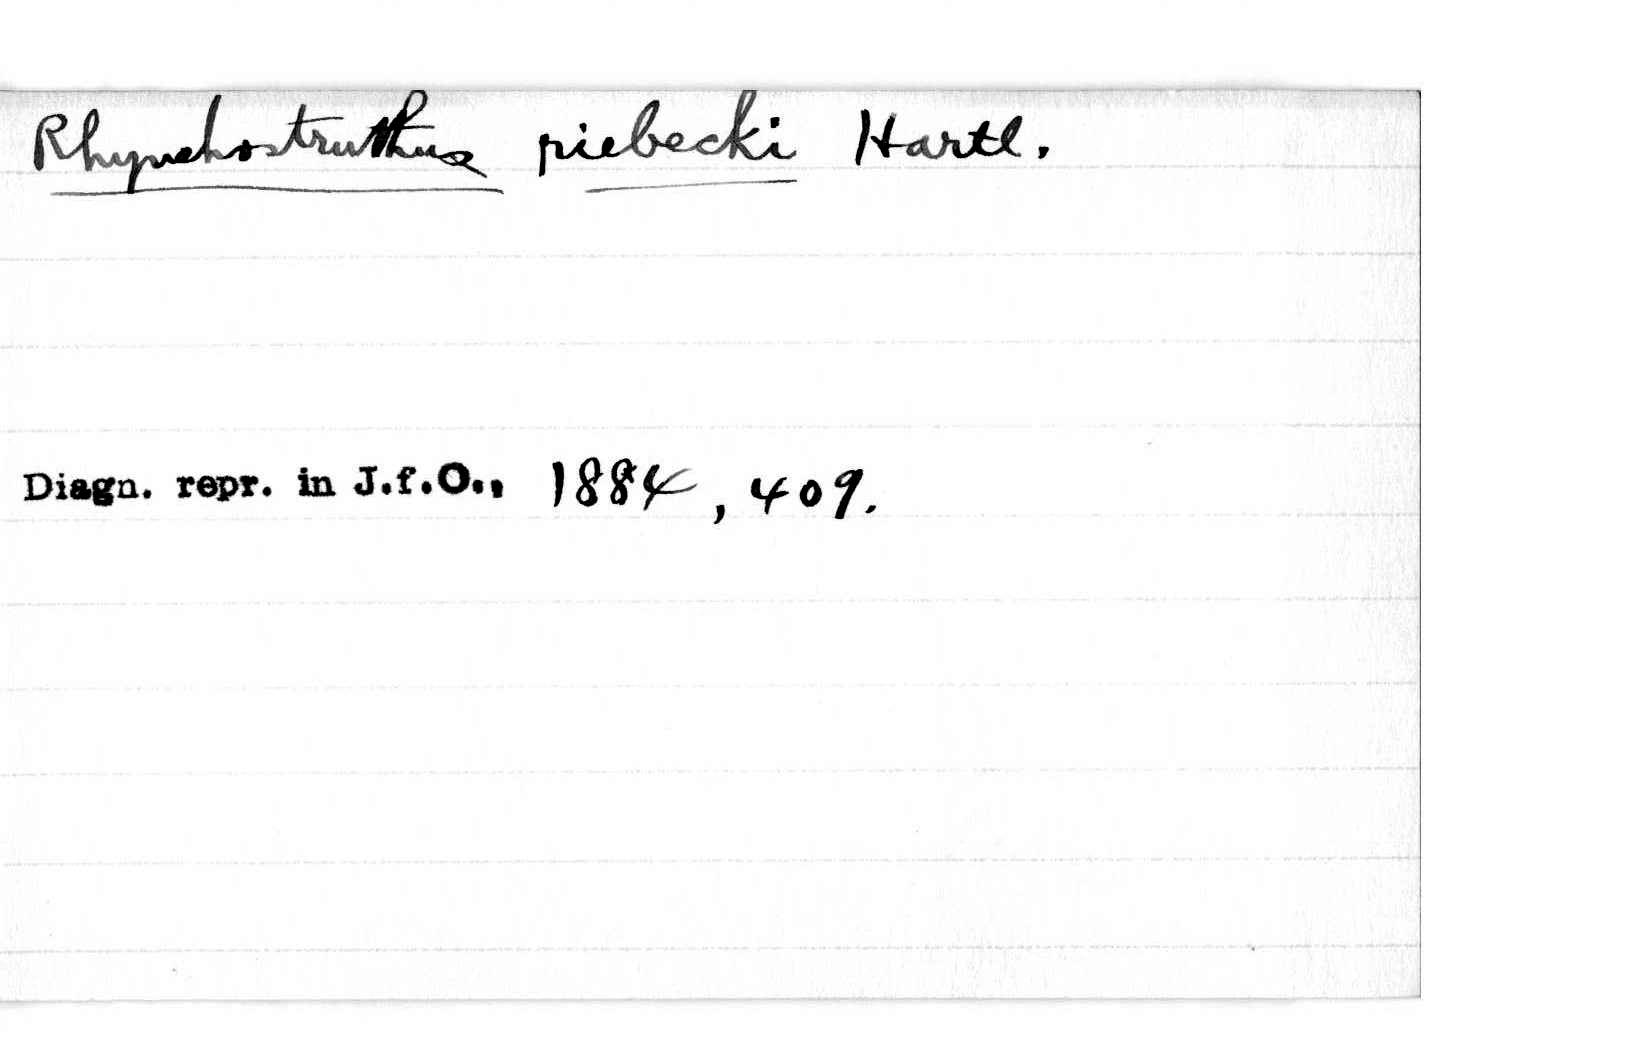 Rhynchostruthus riebecki Hartl.
Diagn. repr. in J.f.O., 1884, 409.